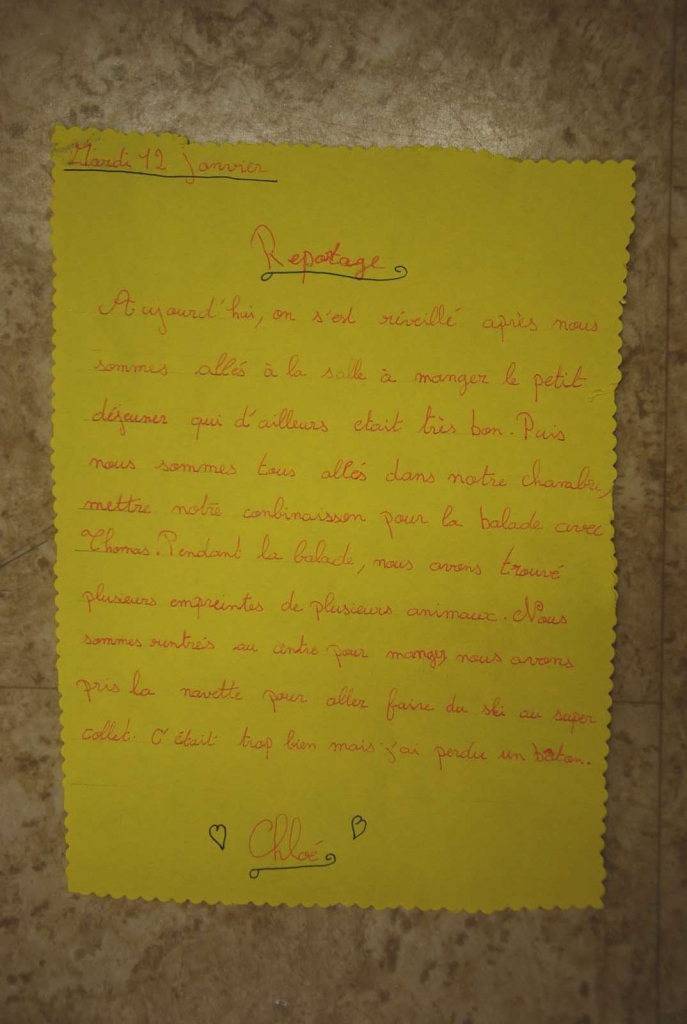 Mardi 12 janvier
Reportage
Aujourd'hui, on s'est réveillé après nous
sommes allés à la salle à manger le petit
déjeuner qui d'ailleurs etait très bon. Puis
nous sommes tous allés dans notre chambre,
mettre notre combinaisson pour la balade avec
Thomas. Pendant la balade, nous avons trouvé
plusieurs empreintes de plusieurs animaux. Nous
sommes rentrés au centre pour manger, nous avons
pris la navette pour aller faire du ski au super
collet. C'était trop bien mais j'ai perdu un bâton.
Chloé